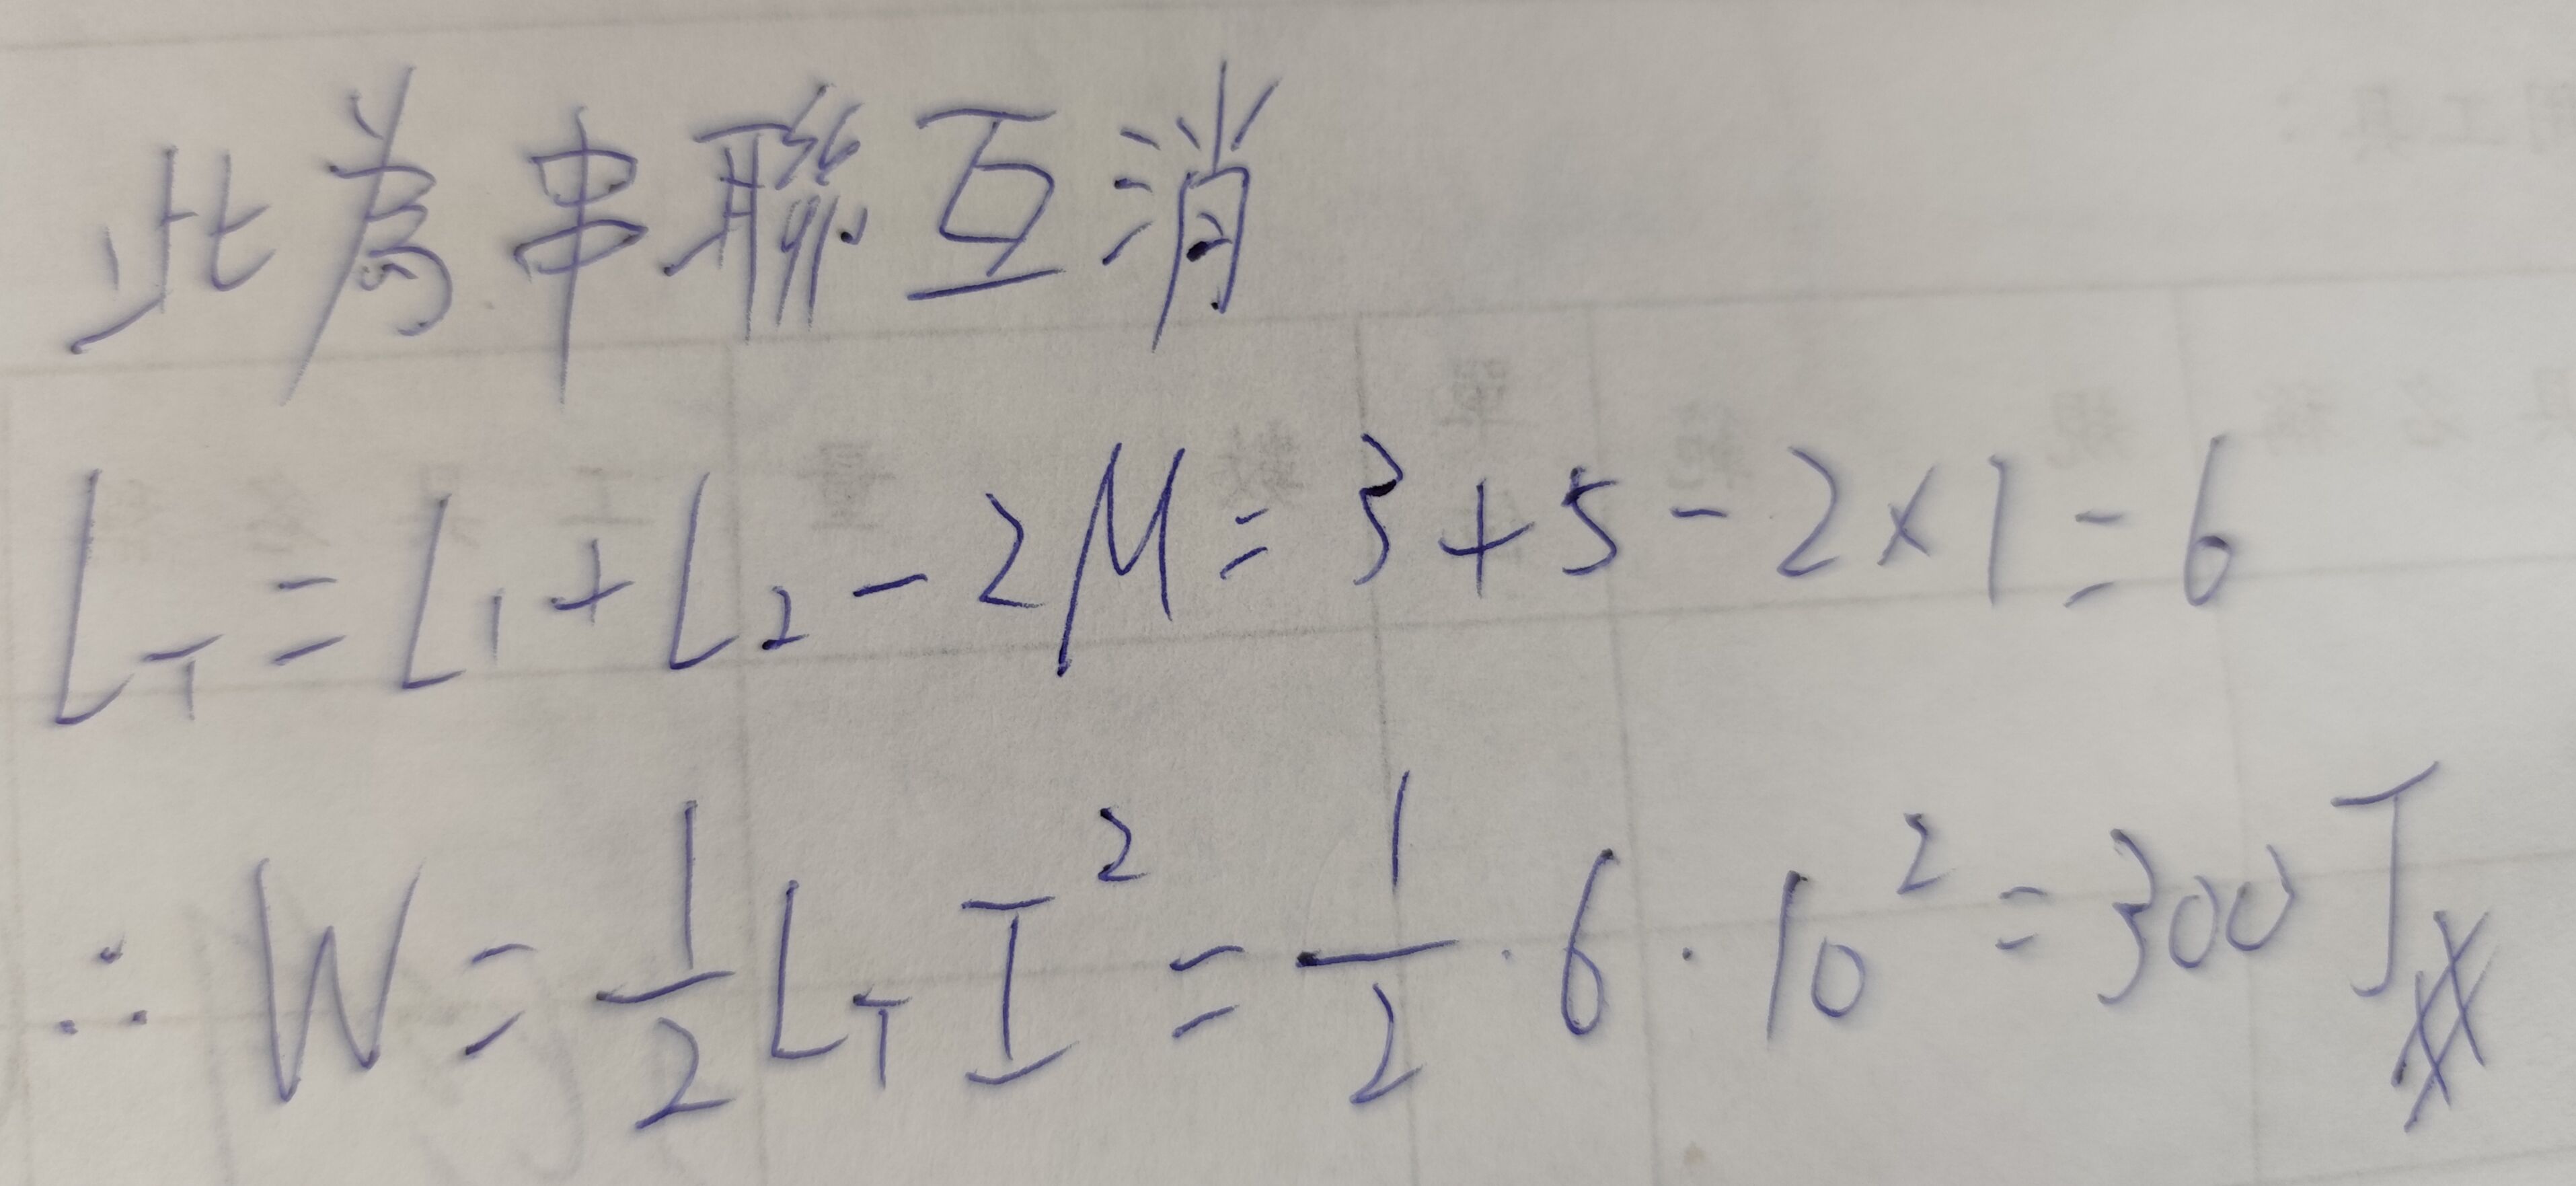 此為串聯互消
L_T = L_1 + L_2 - 2M = 3 + 5 - 2 × 1 = 6
∴ W = 1/2 L_T I^2 = 1/2 · 6 · 10^2 = 300 J